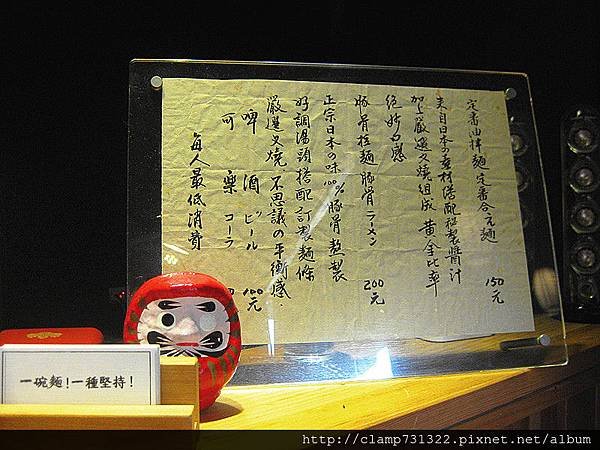 定番油拌麵 定番合え麺 150元
來自日本の素材搭配秘製醬汁
加上嚴選叉燒組成 黃金比率
絕妙口感
豚骨拉麵 豚骨ラーメン 200元
正宗日本の味 100%豚骨熬製
好調湯頭搭配訂製麵條
嚴選叉燒.不思議の平衡感.
啤酒 ビール 100元
可樂 コーラ 元
每人最低消費
一碗麵!一種堅持!
http://clamp731322.pixnet.net/album